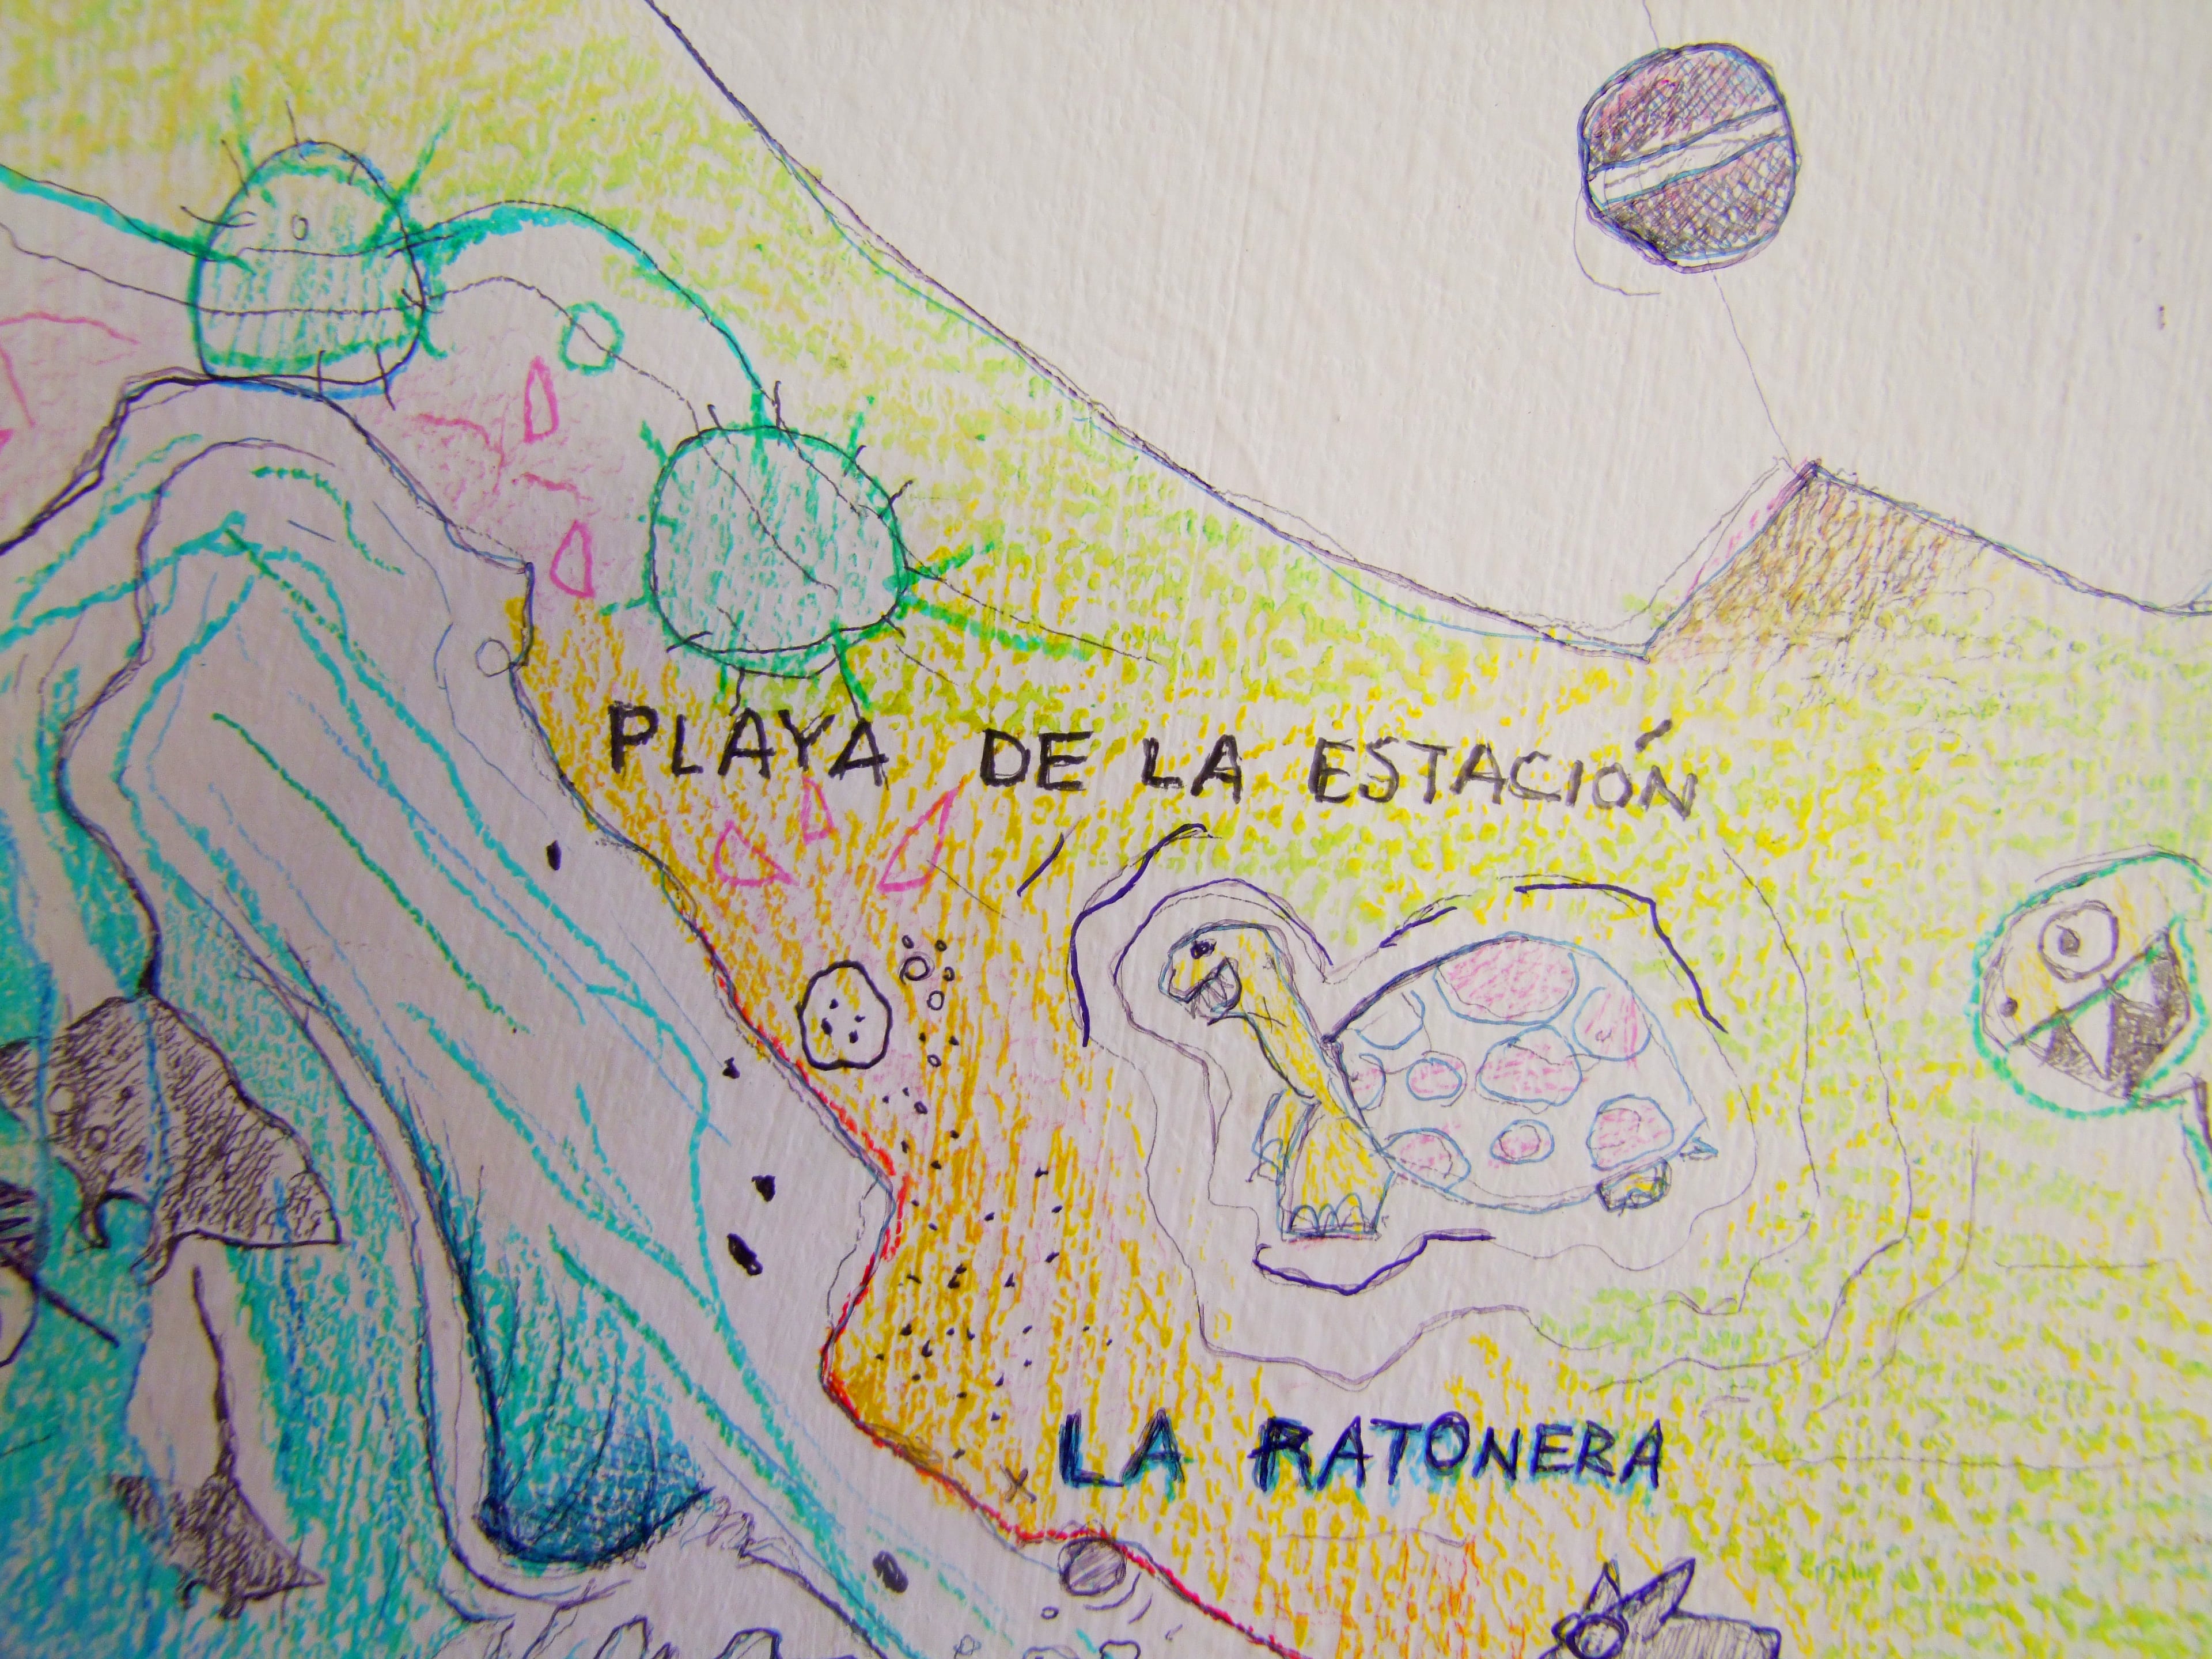 PLAYA DE LA ESTACIÓN
LA RATONERA